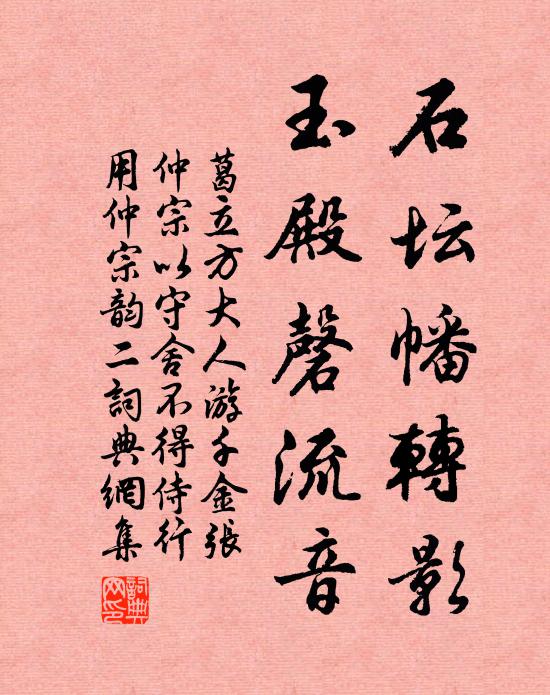 石坛幡轉影
玉殿磬流音
葛立方大人游千金張
仲宗以守舍不得侍行
用仲宗韵二詞典網集